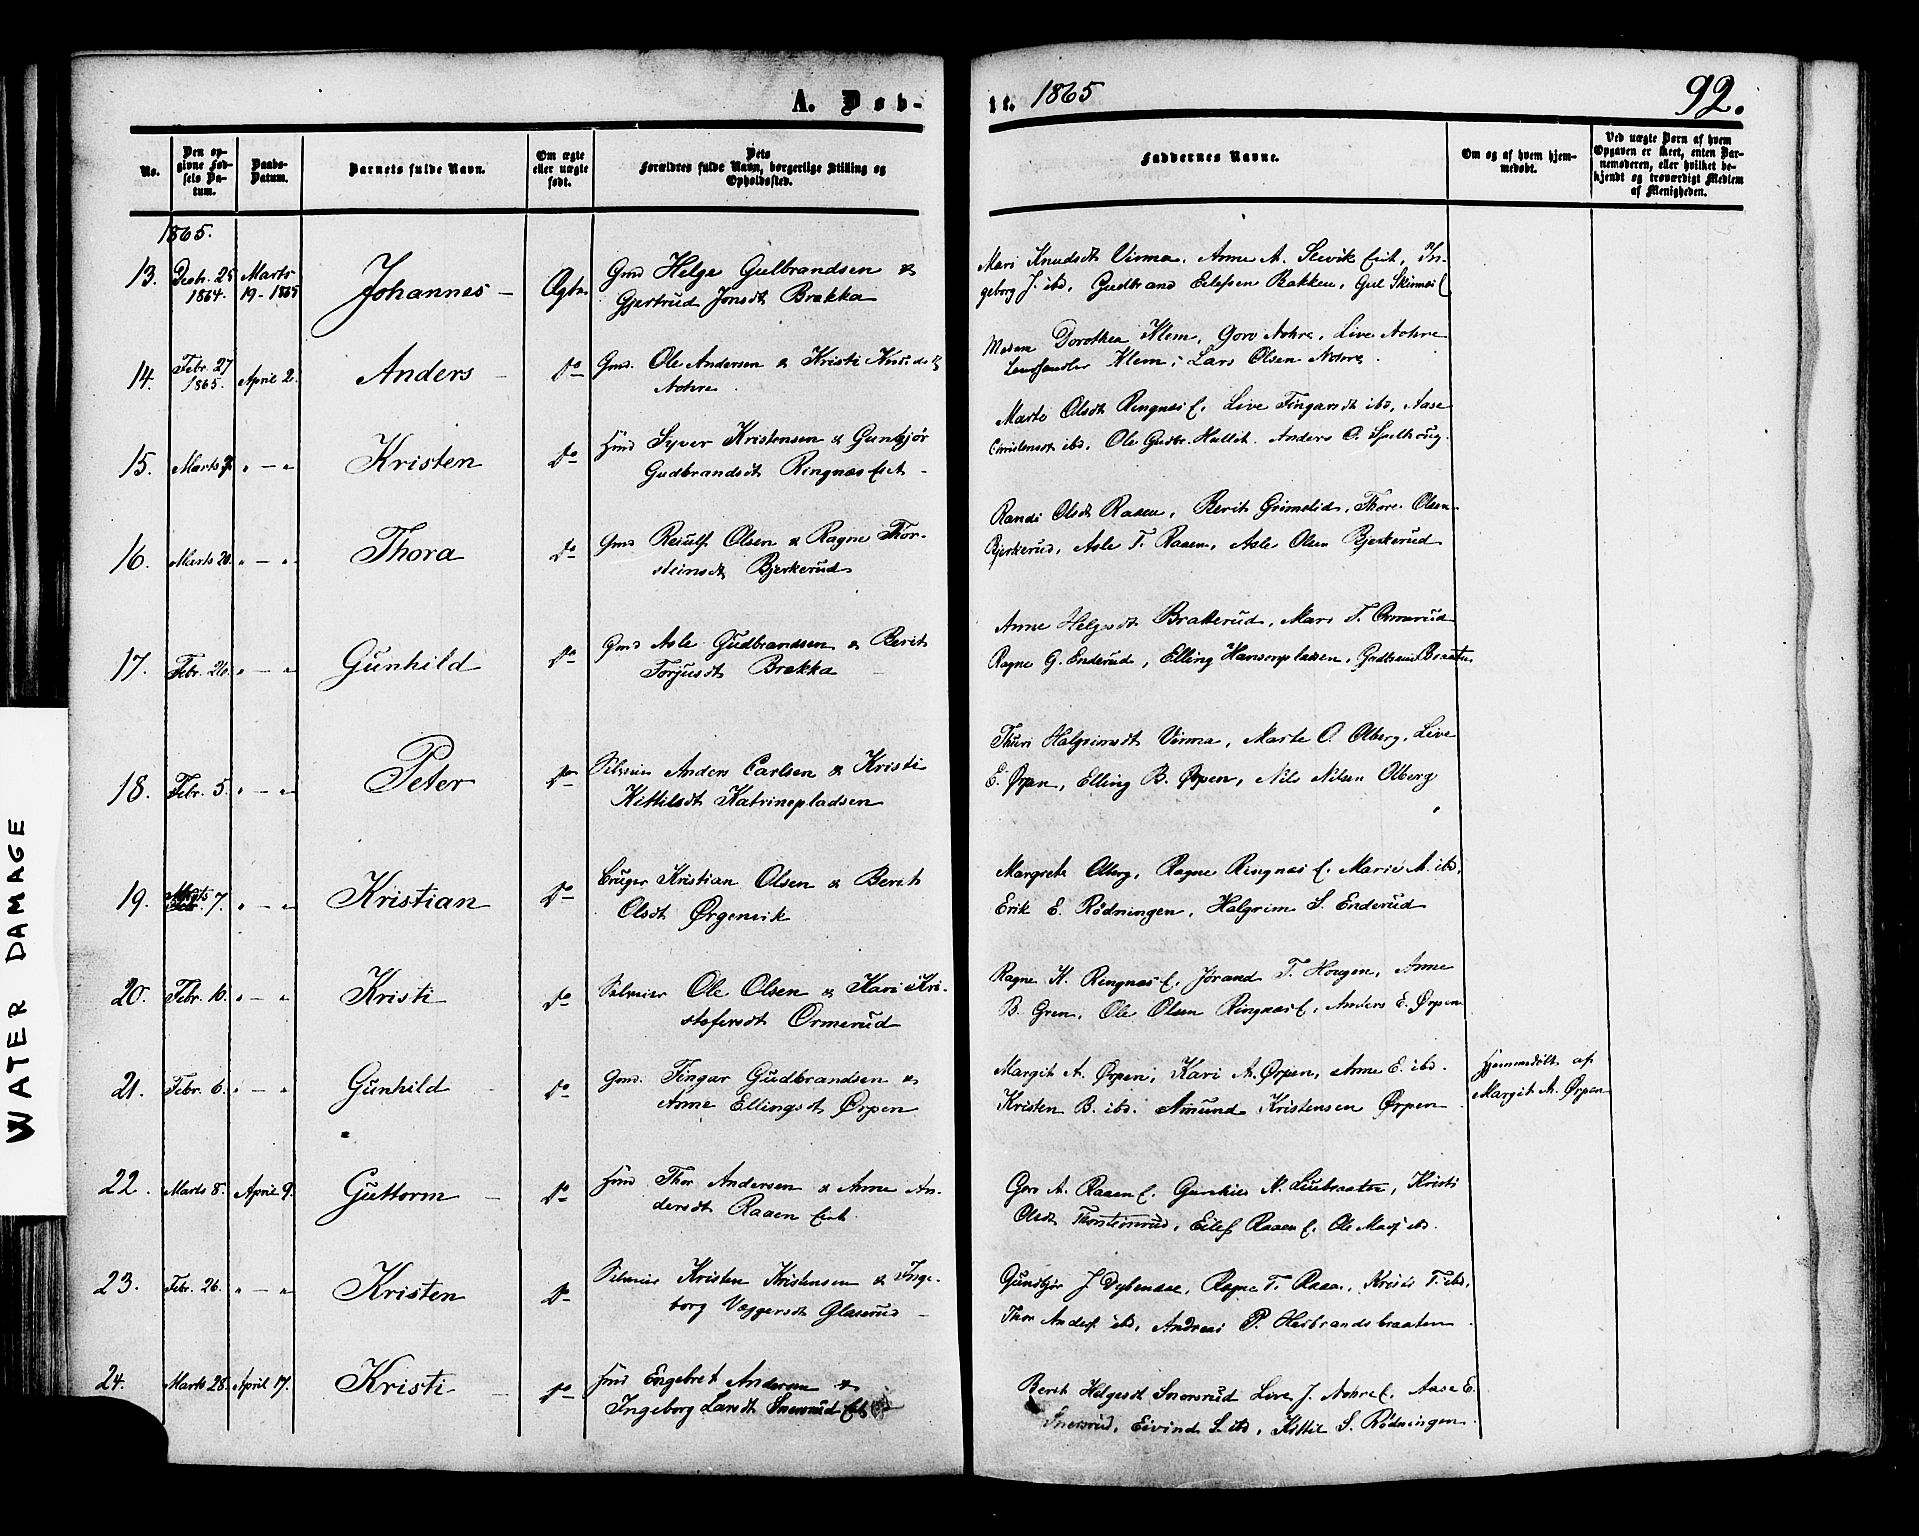 A. Døb-
te. 1865
92.
No.
Den op-
givne Fød-
sels Da-
tum.
Daabs-
Datum.
Barnets fulde Navn.
Om ægte
eller uægte
født.
Dets
Forældres fulde Navn, borgerlige Stilling og
Opholdssted.
Faddernes Navne.
Om og af hvem hjem-
medøbt.
Ved uægte Børn af hvem
Opgaven er skeet, enten Bar-
nemoderen, eller hvilket be-
kjendt og troværdigt Medlem
af Menigheden.
1865.
13. Decbr. 25 1864. Marts 19 - 1865 Johannes - Ægte. Gmd Helge Gulbrandsen &
Gjertrud Jonsdt Brekka
Mari Knudsdt Virma, Anne A. Slevik Eiet, In-
geborg J. ibd, Gudbrand Eilefsen Bakken, Gul
14. Febr. 27 1865. April 2. Anders - Do Gmd. Ole Andersen & Kristi Knudsdt
Nohre.
Dorothea Klem, Goro Nohre, Live Nohre
Landhandler Klem, Lars Olsen Nohre.
15. Marts 7. " - " Kristen Do Hmd Syver Kristensen & Gunbjør
Gudbrandsdt Ringnæs Eiet -
Marte Olsdt Ringnæs E. Live Fingarsdt ibd, Aase
Christensdt ibd, Ole Gudbr. Hallit. Anders O. Spelhoug.
16. Marts 20. " - " Thora Do Gmd Reiulf Olsen & Ragne Thor-
steinsdt Bjerkerud
Randi Olsdt Raaen, Berit Grimelid, Thore Olsen
Bjerkerud, Asle T. Raaen, Asle Olsen Bjerkerud
17. Febr. 26. " - " Gunhild Do Gmd Asle Gudbrandsen & Berit
Torjusdt Brekka -
Anne Helgesdt Brakkerud, Mari T. Ormerud
Ragne G. Enderud, Elling Hansenpladsen, Gudbrand Braaten
18. Febr. 5. " - " Peter Do Selveier Anders Carlsen & Kristi
Kittilsdt Katrinepladsen
Thuri Halgrimsdt Virma, Marte O. Olberg, Live
E. Ørpen, Elling B. Ørpen, Nils Nilsen Olberg
19. Marts 7. " - " Kristian Do Bruger Kristian Olsen & Berit
Olsdt Ørgenvik
Margrete Olberg, Ragne Ringnæs E. Marie A. ibd,
Erik E. Rødningen, Halgrim S. Enderud
20. Febr. 10. " - " Kristi Do Selveier Ole Olsen & Kari Kri-
stofersdt Ormerud
Ragne K. Ringnæs E, Jørand T. Hougen, Anne
B. Gren, Ole Olsen Ringnæs E, Anders E. Ørpen
21. Febr. 6. " - " Gunhild Do Gmd. Fingar Gudbrandsen &
Anne Ellingsdt Ørpen
Margit A. Ørpen, Kari A. Ørpen, Anne E. ibd.
Kristen B. ibd. Amund Kristensen Ørpen
Hjemmedøbt af
Margit A. Ørpen
22. Marts 8. April 9. Guttorm - Do Hmd Thor Andersen & Anne An-
dersdt Raaen Eiet.
Goro A. Raaen E. Gunhild N. Liebraaten, Kristi
Olsdt Thorsteinrud, Eilef Raaen E. Ole ibd.
23. Febr. 26. " - " Kristen Do Selveier Kristen Kristensen & Inge-
borg Væggersdt Glaserud -
Gunbjør J. Dybendal, Ragne T. Raaen, Kristi T. ibd,
Thor Anders. ibd, Andreas P. Herbrandsbraaten
24. Marts 28. April 17. Kristi - Do Hmd Engebret Andersen &
Ingeborg Larsdt Snersrud Eiet
Berit Helgesdt Snersrud Live J. Nohre E. Aase E.
Snersrud, Eivind S. ibd, Kittil S. Rødningen
WATER DAMAGE